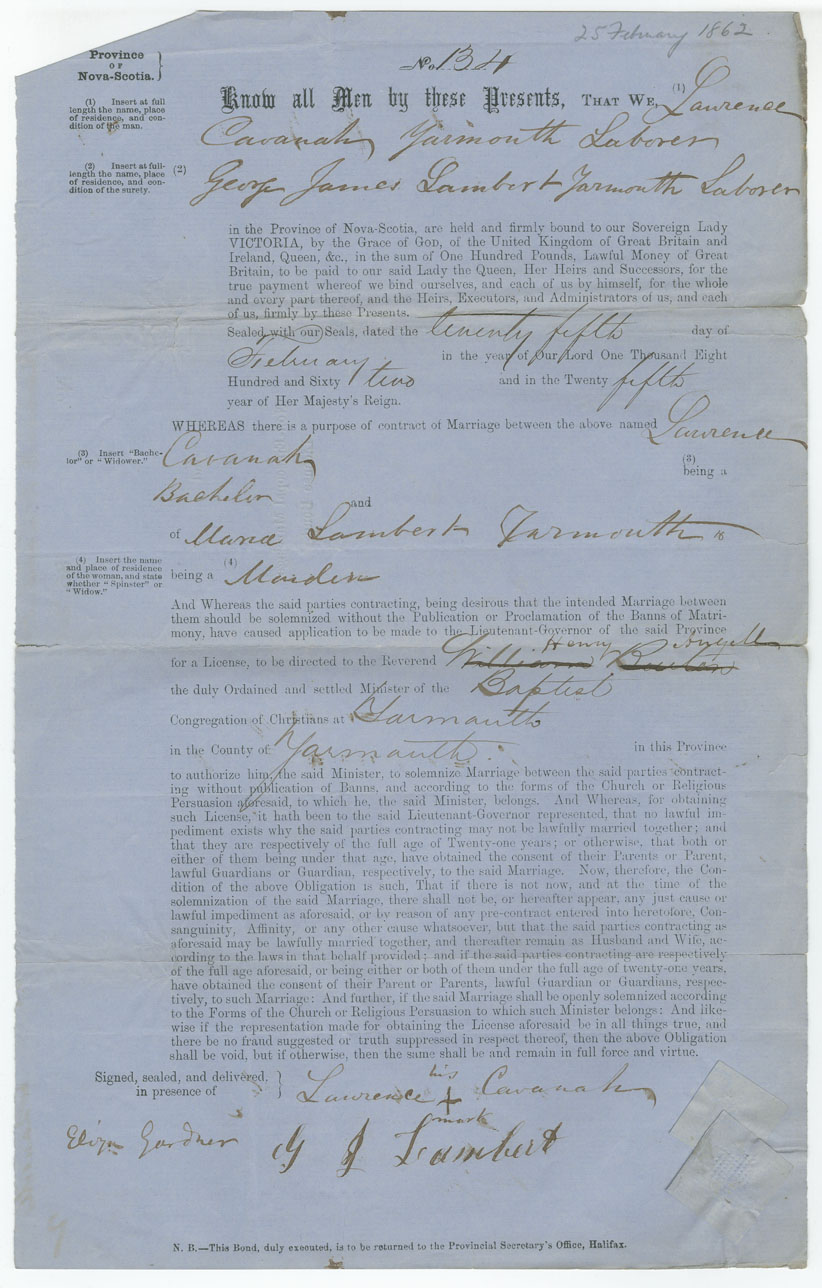 25 February 1862
Province
OF
Nova-Scotia.
No. 134
(1) Insert at full
length the name, place
of residence, and con-
dition of the man.
Know all Men by these Presents, THAT WE, (1) Lawrence
Cavanah Yarmouth Laborer
(2) Insert at full-
length the name, place
of residence, and con-
dition of the surety.
(2) George James Lambert Yarmouth Laborer
in the Province of Nova-Scotia, are held and firmly bound to our Sovereign Lady
VICTORIA, by the Grace of God, of the United Kingdom of Great Britain and
Ireland, Queen, &c., in the sum of One Hundred Pounds, Lawful Money of Great
Britain, to be paid to our said Lady the Queen, Her Heirs and Successors, for the
true payment whereof we bind ourselves, and each of us by himself, for the whole
and every part thereof, and the Heirs, Executors, and Administrators of us, and each
of us, firmly by these Presents.
Sealed with our Seals, dated the twenty fifth day of
February in the year of Our Lord One Thousand Eight
Hundred and Sixty two and in the Twenty fifth
year of Her Majesty's Reign.
WHEREAS there is a purpose of contract of Marriage between the above named Lawrence
(3) Insert "Bache-
lor" or "Widower."
Cavanah (3)
being a
Bachelor and
of Maria Lambert Yarmouth
(4) Insert the name
and place of residence
of the woman, and state
whether "Spinster" or
"Widow."
being a (4) Maiden
And Whereas the said parties contracting, being desirous that the intended Marriage between
them should be solemnized without the Publication or Proclamation of the Banns of Matri-
mony, have caused application to be made to the Lieutenant-Governor of the said Province
Henry Angell
for a License, to be directed to the Reverend William Burton
the duly Ordained and settled Minister of the Baptist
Congregation of Christians at Yarmouth
in the County of Yarmouth. in this Province
to authorize him, the said Minister, to solemnize Marriage between the said parties contract-
ing without publication of Banns, and according to the forms of the Church or Religious
Persuasion aforesaid, to which he, the said Minister, belongs. And Whereas, for obtaining
such License, it hath been to the said Lieutenant-Governor represented, that no lawful im-
pediment exists why the said parties contracting may not be lawfully married together; and
that they are respectively of the full age of Twenty-one years; or otherwise, that both or
either of them being under that age, have obtained the consent of their Parents or Parent,
lawful Guardians or Guardian, respectively, to the said Marriage. Now, therefore, the Con-
dition of the above Obligation is such, That if there is not now, and at the time of the
solemnization of the said Marriage, there shall not be, or hereafter appear, any just cause or
lawful impediment as aforesaid, or by reason of any pre-contract entered into heretofore, Con-
sanguinity, Affinity, or any other cause whatsoever, but that the said parties contracting as
aforesaid may be lawfully married together, and thereafter remain as Husband and Wife, ac-
cording to the laws in that behalf provided; and if the said parties contracting are respectively
of the full age aforesaid, or being either or both of them under the full age of twenty-one years,
have obtained the consent of their Parent or Parents, lawful Guardian or Guardians, respec-
tively, to such Marriage: And further, if the said Marriage shall be openly solemnized according
to the Forms of the Church or Religious Persuasion to which such Minister belongs: And like-
wise if the representation made for obtaining the License aforesaid be in all things true, and
there be no fraud suggested or truth suppressed in respect thereof, then the above Obligation
shall be void, but if otherwise, then the same shall be and remain in full force and virtue.
Signed, sealed, and delivered,
in presence of
his
Lawrence + Cavanah
mark
Eliza Gardner G J Lambert
N. B.—This Bond, duly executed, is to be returned to the Provincial Secretary's Office, Halifax.